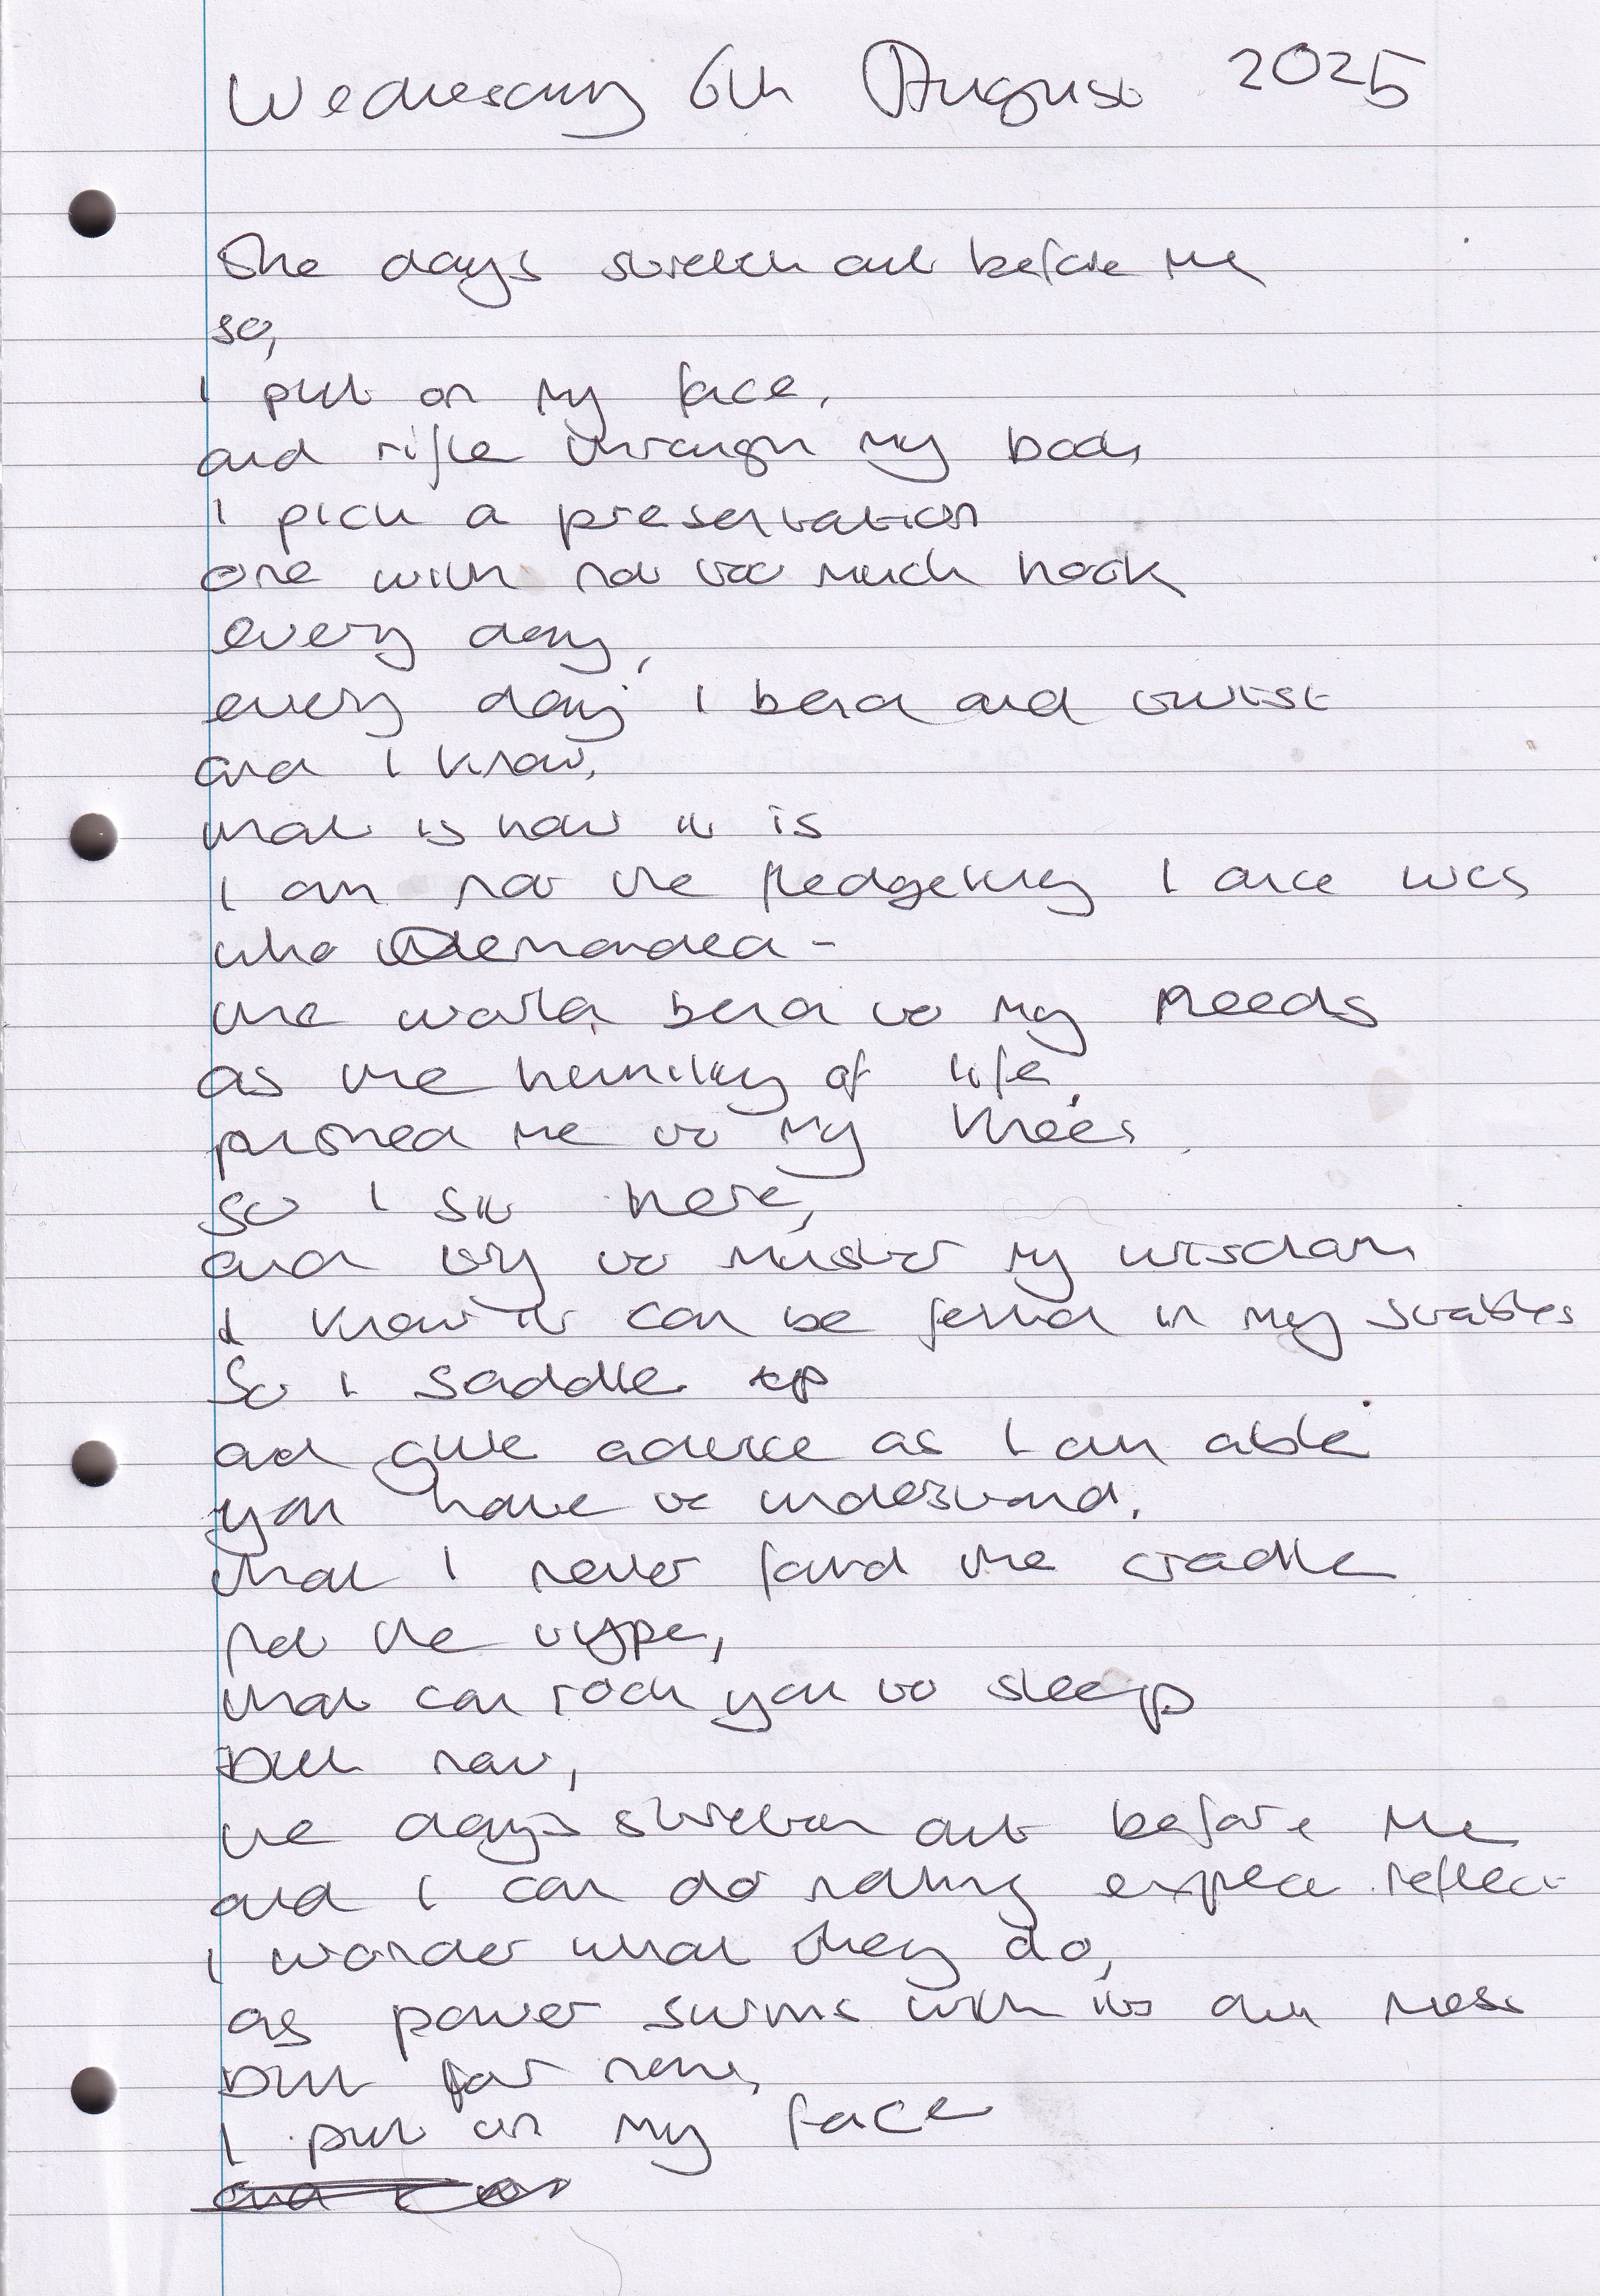 Wednesday 6th August 2025
The days stretch out before me
so,
I put on my face,
and rifle through my body
I pick a presentation
one with not too much hook
every day,
every day I bend and twist
and I know,
that is how it is
I am not the fledgeling I once was
who demanded -
the world bend to my needs
as the humility of life,
pushed me to my knees.
so I sit here,
and try to muster my wisdom
I know it can be found in my stables
So I saddle up
and give advice as I am able
you have to understand,
that I never found the cradle
not the type,
that can rock you to sleep
But now,
the days stretch out before me
and I can do nothing expect reflect
I wonder what they do,
as power swims with its own mess
But for now,
I put on my face